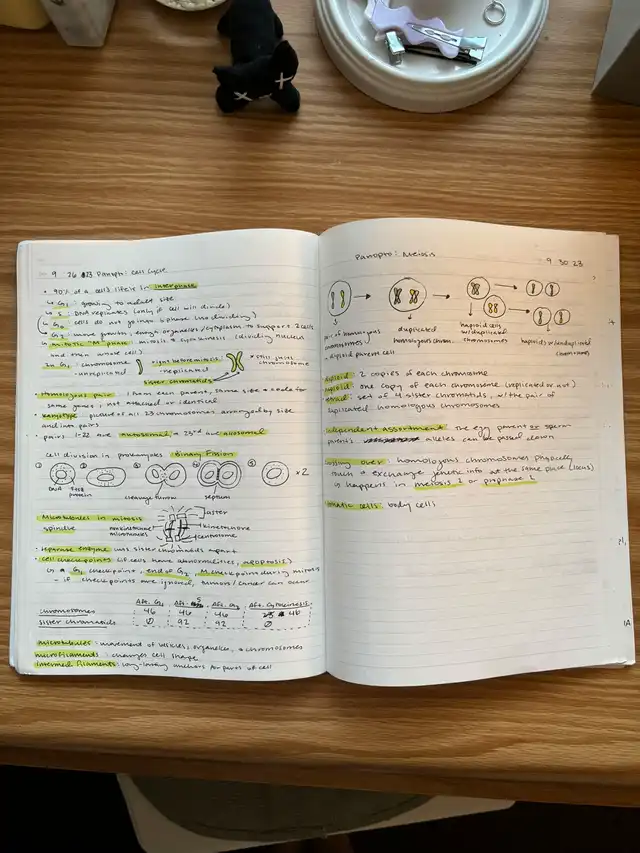 9 26 23 Panopro: Cell Cycle
• 90% of a cell's life is in interphase
↳ G1: growing to adult size
↳ S: DNA replicates (only if cell will divide)
G0: cells do not go into S phase (no dividing)
↳ G2: more growth, enough organelles/cytoplasm to support 2 cells
• mitotic "M" phase: mitosis + cytokinesis (dividing nucleus
and then whole cell)
In G1: chromosome
- unreplicated
right before mitosis
- replicated
* still just 1 chromosome
sister chromatids
• Homologous pair: 1 from each parent, same size + code for
same genes, not attached or identical
• karyotype: picture of all 23 chromosomes arranged by size
and in pairs
• pairs 1-22 are autosomal, 23rd are
cell division in prokaryotes: Binary Fission
① ② ③ ④ ⑤ x 2
DNA
protein
cleavage furrow
septum
Microtubules in mitosis
aster
spindle
nonkinetochore
microtubules
kinetochore
centrosome
• separase enzyme cuts sister chromatids apart
• cell checkpoints (if cells have abnormalities, apoptosis)
↳ G1 checkpoint, end of G2, M checkpoint during mitosis
- if checkpoints are ignored, tumors/cancer can occur
Aft. G1 Aft. S Aft. G2 Aft. cytokinesis
chromosomes 46 46 46 46
sister chromatids 0 92 92 0
microtubules: movement of vesicles, organelles, + chromosomes
microfilaments: changes cell shape
intermed. filaments: long-lasting anchors for parts of cell
Panopro: Meiosis 9 30 23
pair of homologous
chromosomes
- diploid parent cell
duplicated
homologous chrom.
haploid cells
w/duplicated
chromosomes
haploids w/unduplicated
chromosomes
diploid: 2 copies of each chromosome
haploid: one copy of each chromosome (replicated or not)
tetrad: set of 4 sister chromatids, w/the pair of
duplicated homologous chromosomes
independent assortment: the egg parent or sperm
parent's alleles can be passed down
crossing over: homologous chromosomes physically
touch + exchange genetic info at the same place (locus)
↳ happens in meiosis 1 or prophase 1
somatic cells: body cells